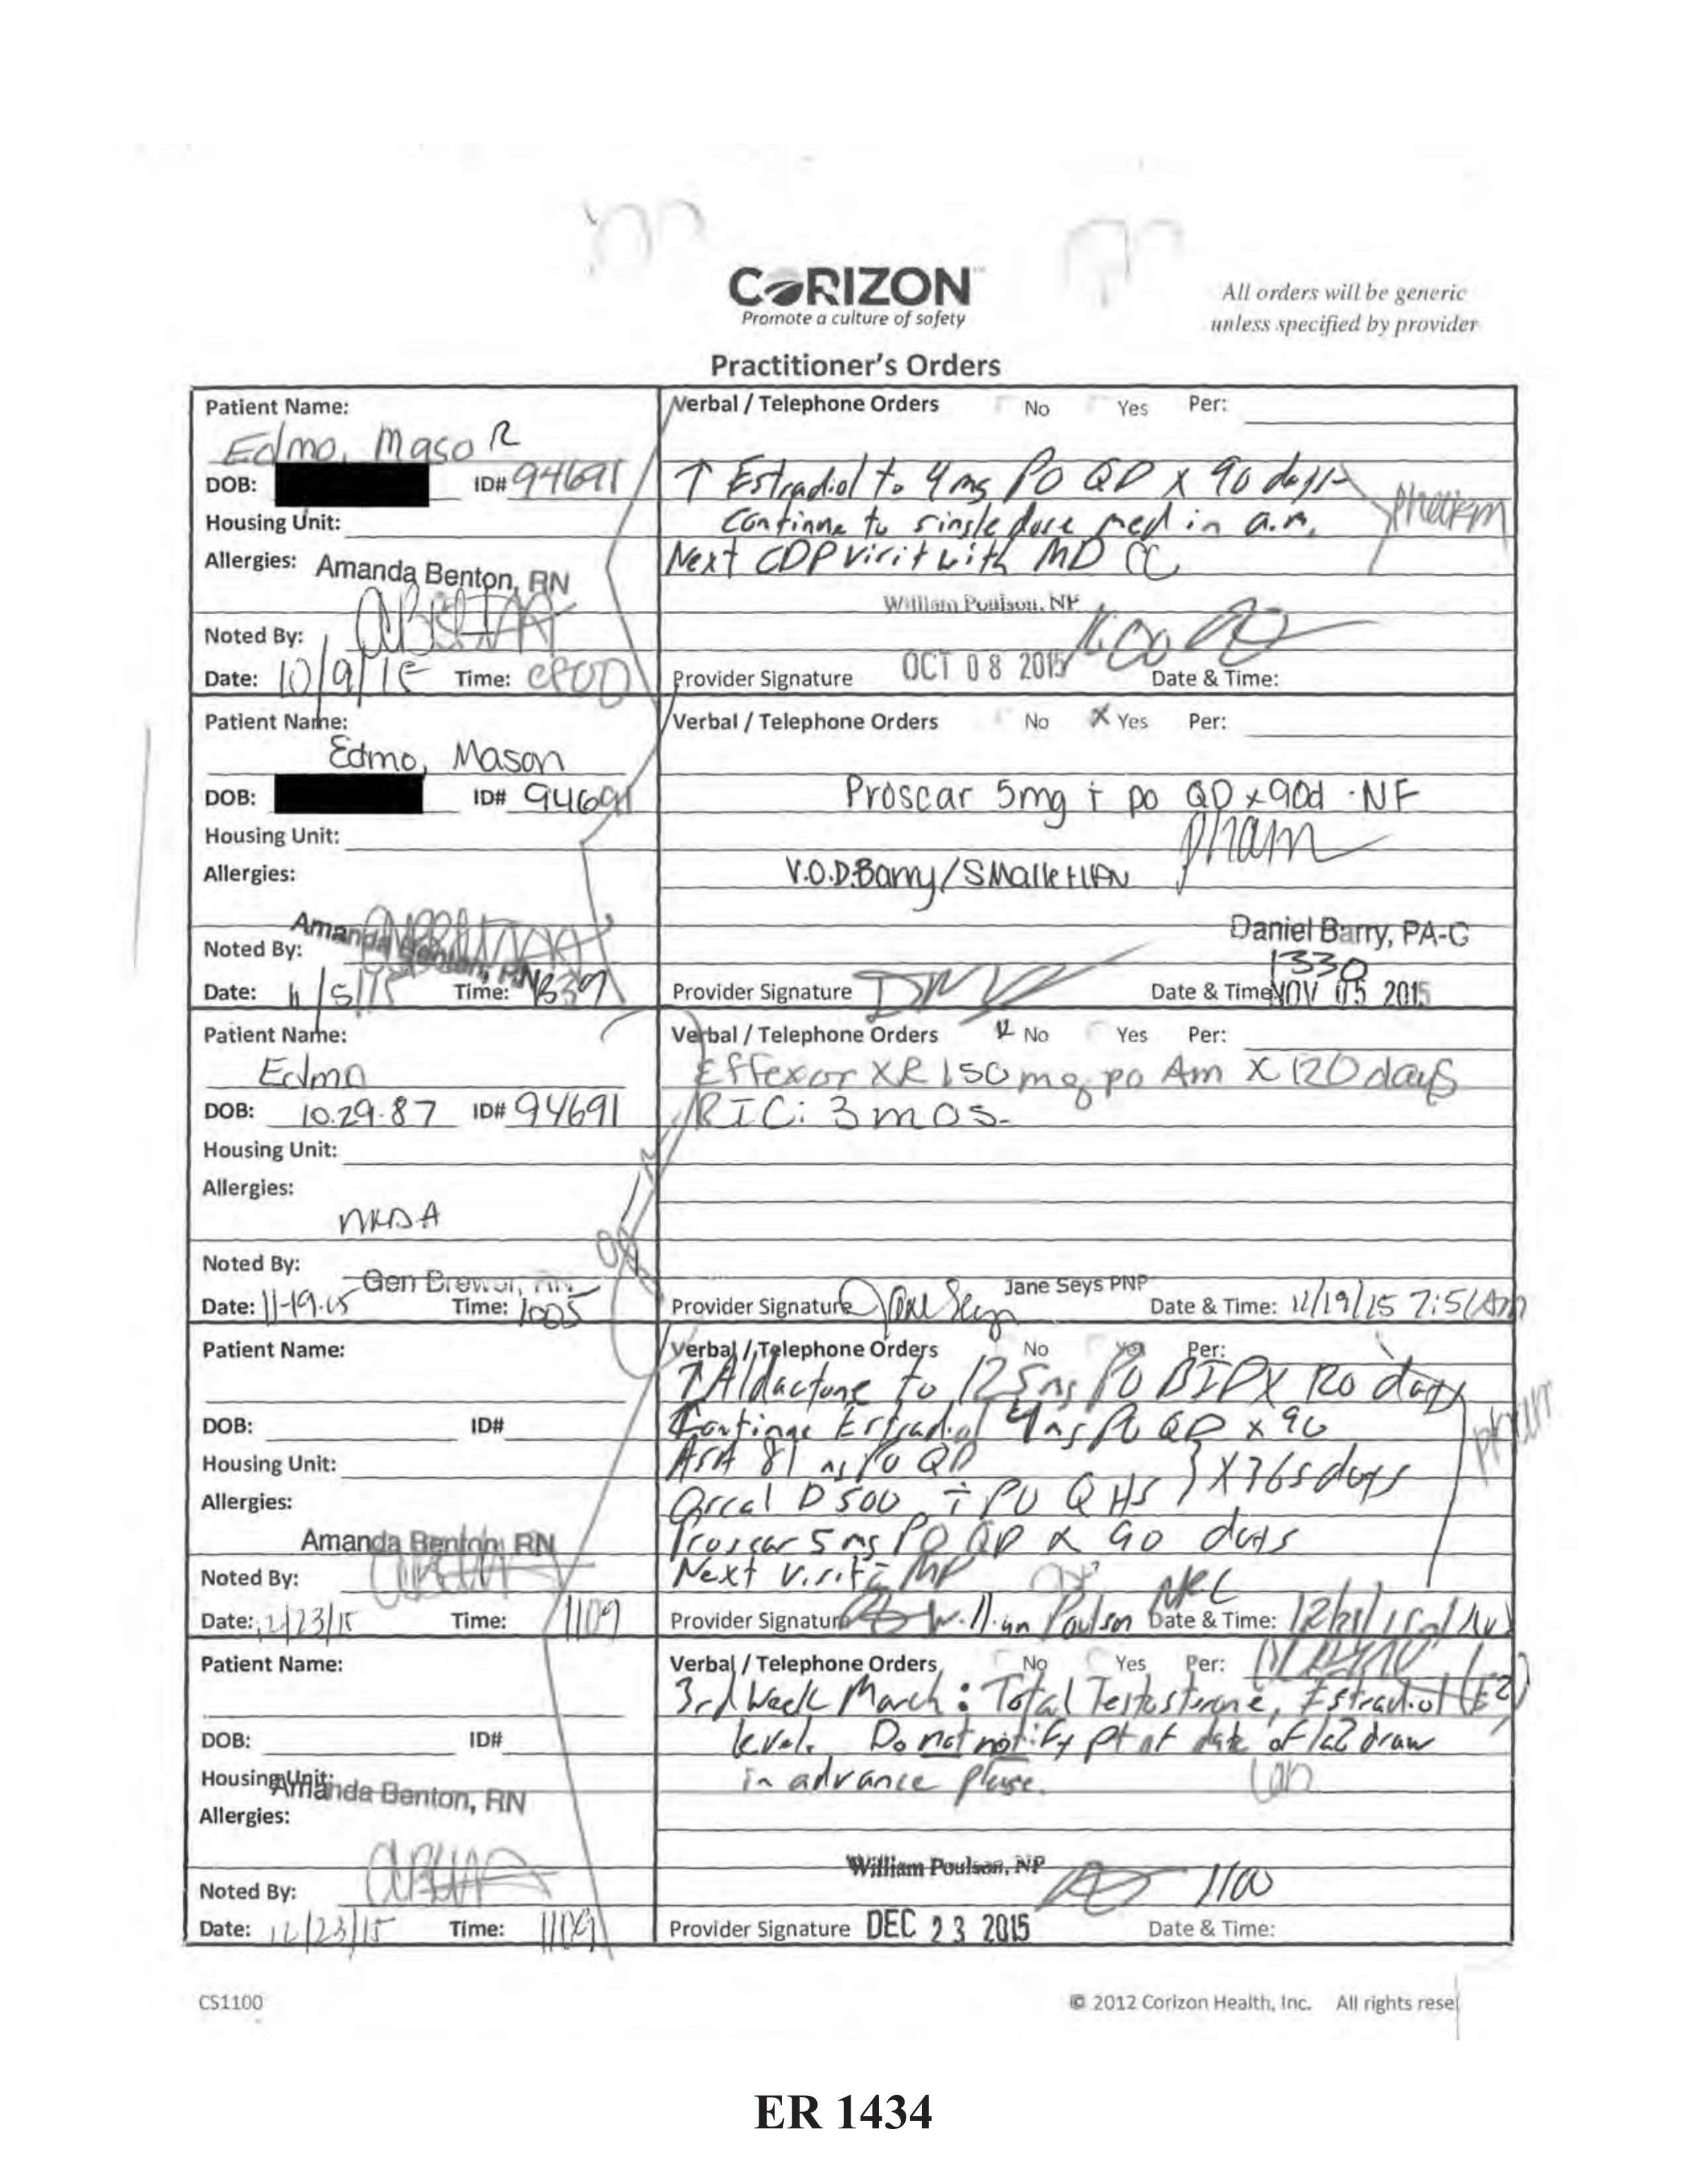 CORIZON™
Promote a culture of safety
All orders will be generic
unless specified by provider
Practitioner's Orders
Patient Name:
Edmo, Maso R
DOB: ID# 94691
Housing Unit:
Allergies: Amanda Benton, RN
Noted By:
Date: 10/9/15 Time:
Verbal / Telephone Orders No Yes Per:
↑ Estradiol to 4mg PO QD x 90 days
Continue to single dose med in a.m.
pharm
Next CDP visit with MD CC
William Poulson, NP
Provider Signature OCT 08 2015 Date & Time:
Patient Name:
Edmo, Mason
DOB: ID# 94691
Housing Unit:
Allergies:
Amanda Benton, RN
Noted By:
Date: 11/5/15 Time:
Verbal / Telephone Orders No X Yes Per:
Proscar 5mg † po QD x 90d · NF
pharm
V.O. D.Barry/
Daniel Barry, PA-C
1330
Provider Signature Date & Time: NOV 05 2015
Patient Name:
Edmo
DOB: 10.29.87 ID# 94691
Housing Unit:
Allergies:
NKDA
Noted By:
Gen Brewer, RN
Date: 11-19-15 Time: 1005
Verbal / Telephone Orders No Yes Per:
Effexor XR 150 mg po Am X 120 days
RTC: 3 mos.
Jane Seys PNP
Provider Signature Jane Seys Date & Time: 11/19/15 7:51 Am
Patient Name:
DOB: ID#
Housing Unit:
Allergies:
Amanda Benton, RN
Noted By:
Date: 12/23/15 Time: 1109
Verbal / Telephone Orders No Yes Per:
↑ Aldactone to 125mg PO BID X 120 days
Continue Estradiol 4mg PO QD x 90
pharm
ASA 81 mg PO QD
Orcal D 500 PO QHS } X 365 days
Proscar 5mg PO QD x 90 days
Next visit c̄ MP
Provider Signature William Poulson Date & Time:
Patient Name:
DOB: ID#
Housing Unit:
Amanda Benton, RN
Allergies:
Noted By:
Date: 12/23/15 Time: 1109
Verbal / Telephone Orders No Yes Per:
3rd Week March: Total Testosterone, Estradiol (E2)
level. Do not notify pt of date of lab draw
in advance please.
Lab
William Poulson, NP
1100
Provider Signature DEC 23 2015 Date & Time:
CS1100
© 2012 Corizon Health, Inc. All rights rese
ER 1434